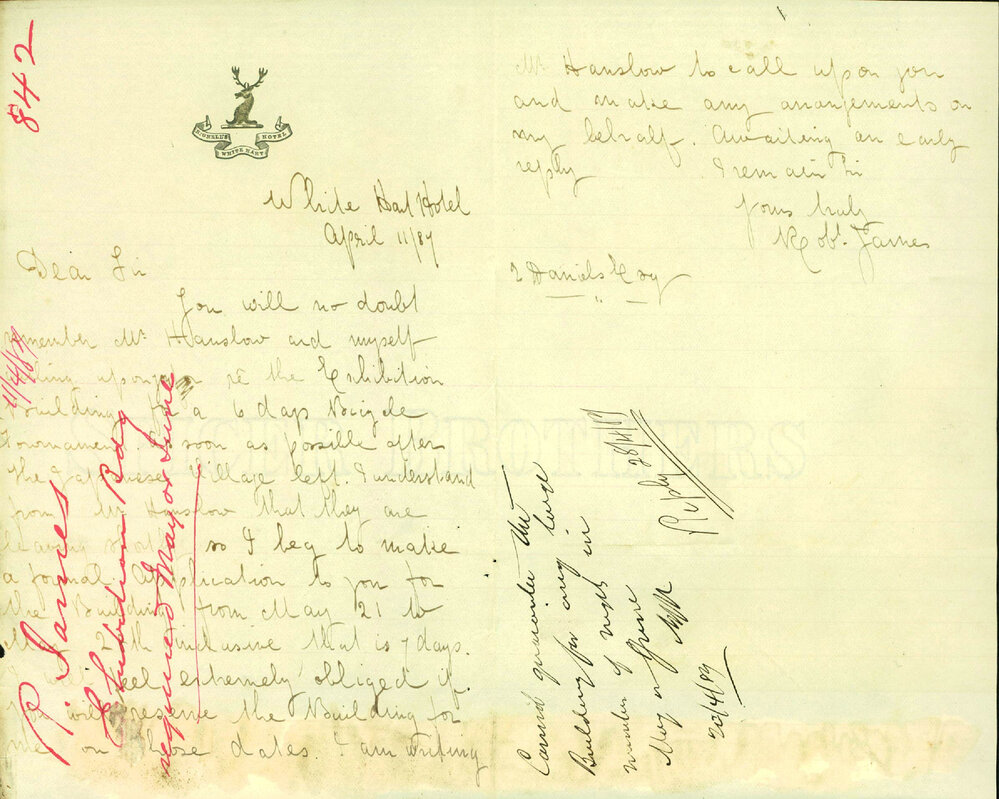 842
HOTEL
WHITE HART
White Hart Hotel
April 11/87
Dear Sir
You will no doubt
remember Mr. Hanslow and myself
calling upon you re the Exhibition
Building for a 6 days Bicycle
Tournament as soon as possible after
the Japanese Village left. I understand
from Mr Hanslow that they are
leaving shortly so I beg to make
a formal Application to you for
the Building from May 21 to
May 27th inclusive that is 7 days.
I will feel extremely obliged if
you will reserve the Building for
me on those dates. I am writing
Mr. Hanslow to call upon you
and make any arrangements on
my behalf. Awaiting an early
reply I remain Sir
Yours truly
Robt. James
Daniels Esqy
R. James
Exhibition Bdg
required May or June
Cannot guarantee the
Building for any large
number of nights in
May or June
20/4/87
Reply 28/4/87